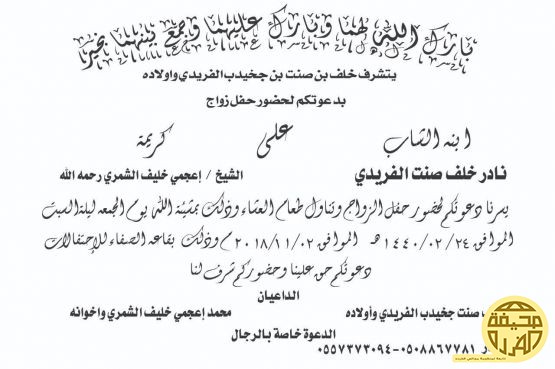 بارك الله لهما وبارك عليهما وجمع بينهما بخير
يتشرف خلف بن صنت بن جخيدب الفريدي واولاده
بدعوتكم لحضور حفل زواج
ابنه الشاب على كريمة
نادر خلف صنت الفريدي الشيخ / إعجمي خليف الشمري رحمه الله
يسرنا دعوتكم لحضور حفل الزواج وتناول طعام العشاء وذلك بمشيئة الله يوم الجمعه ليلة السبت
الموافق ١٤٤٠/٠٢/٢٤هـ الموافق ٢٠١٨/١١/٠٢م وذلك بقاعه الصفاء للإحتفالات
دعوتكم حق علينا وحضوركم شرف لنا
الداعيان
صنت جخيدب الفريدي وأولاده محمد إعجمي خليف الشمري واخوانه
الدعوة خاصة بالرجال
٠٥٠٨٨٦٧٧٨١-٠٥٥٧٣٧٣٠٩٤
صحيفة